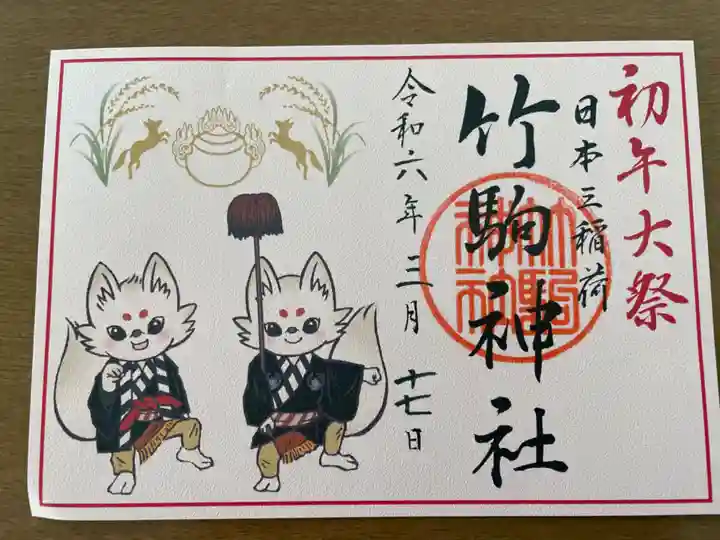 初午大祭
日本三稲荷
竹駒神社
令和六年三月十七日
竹駒神社